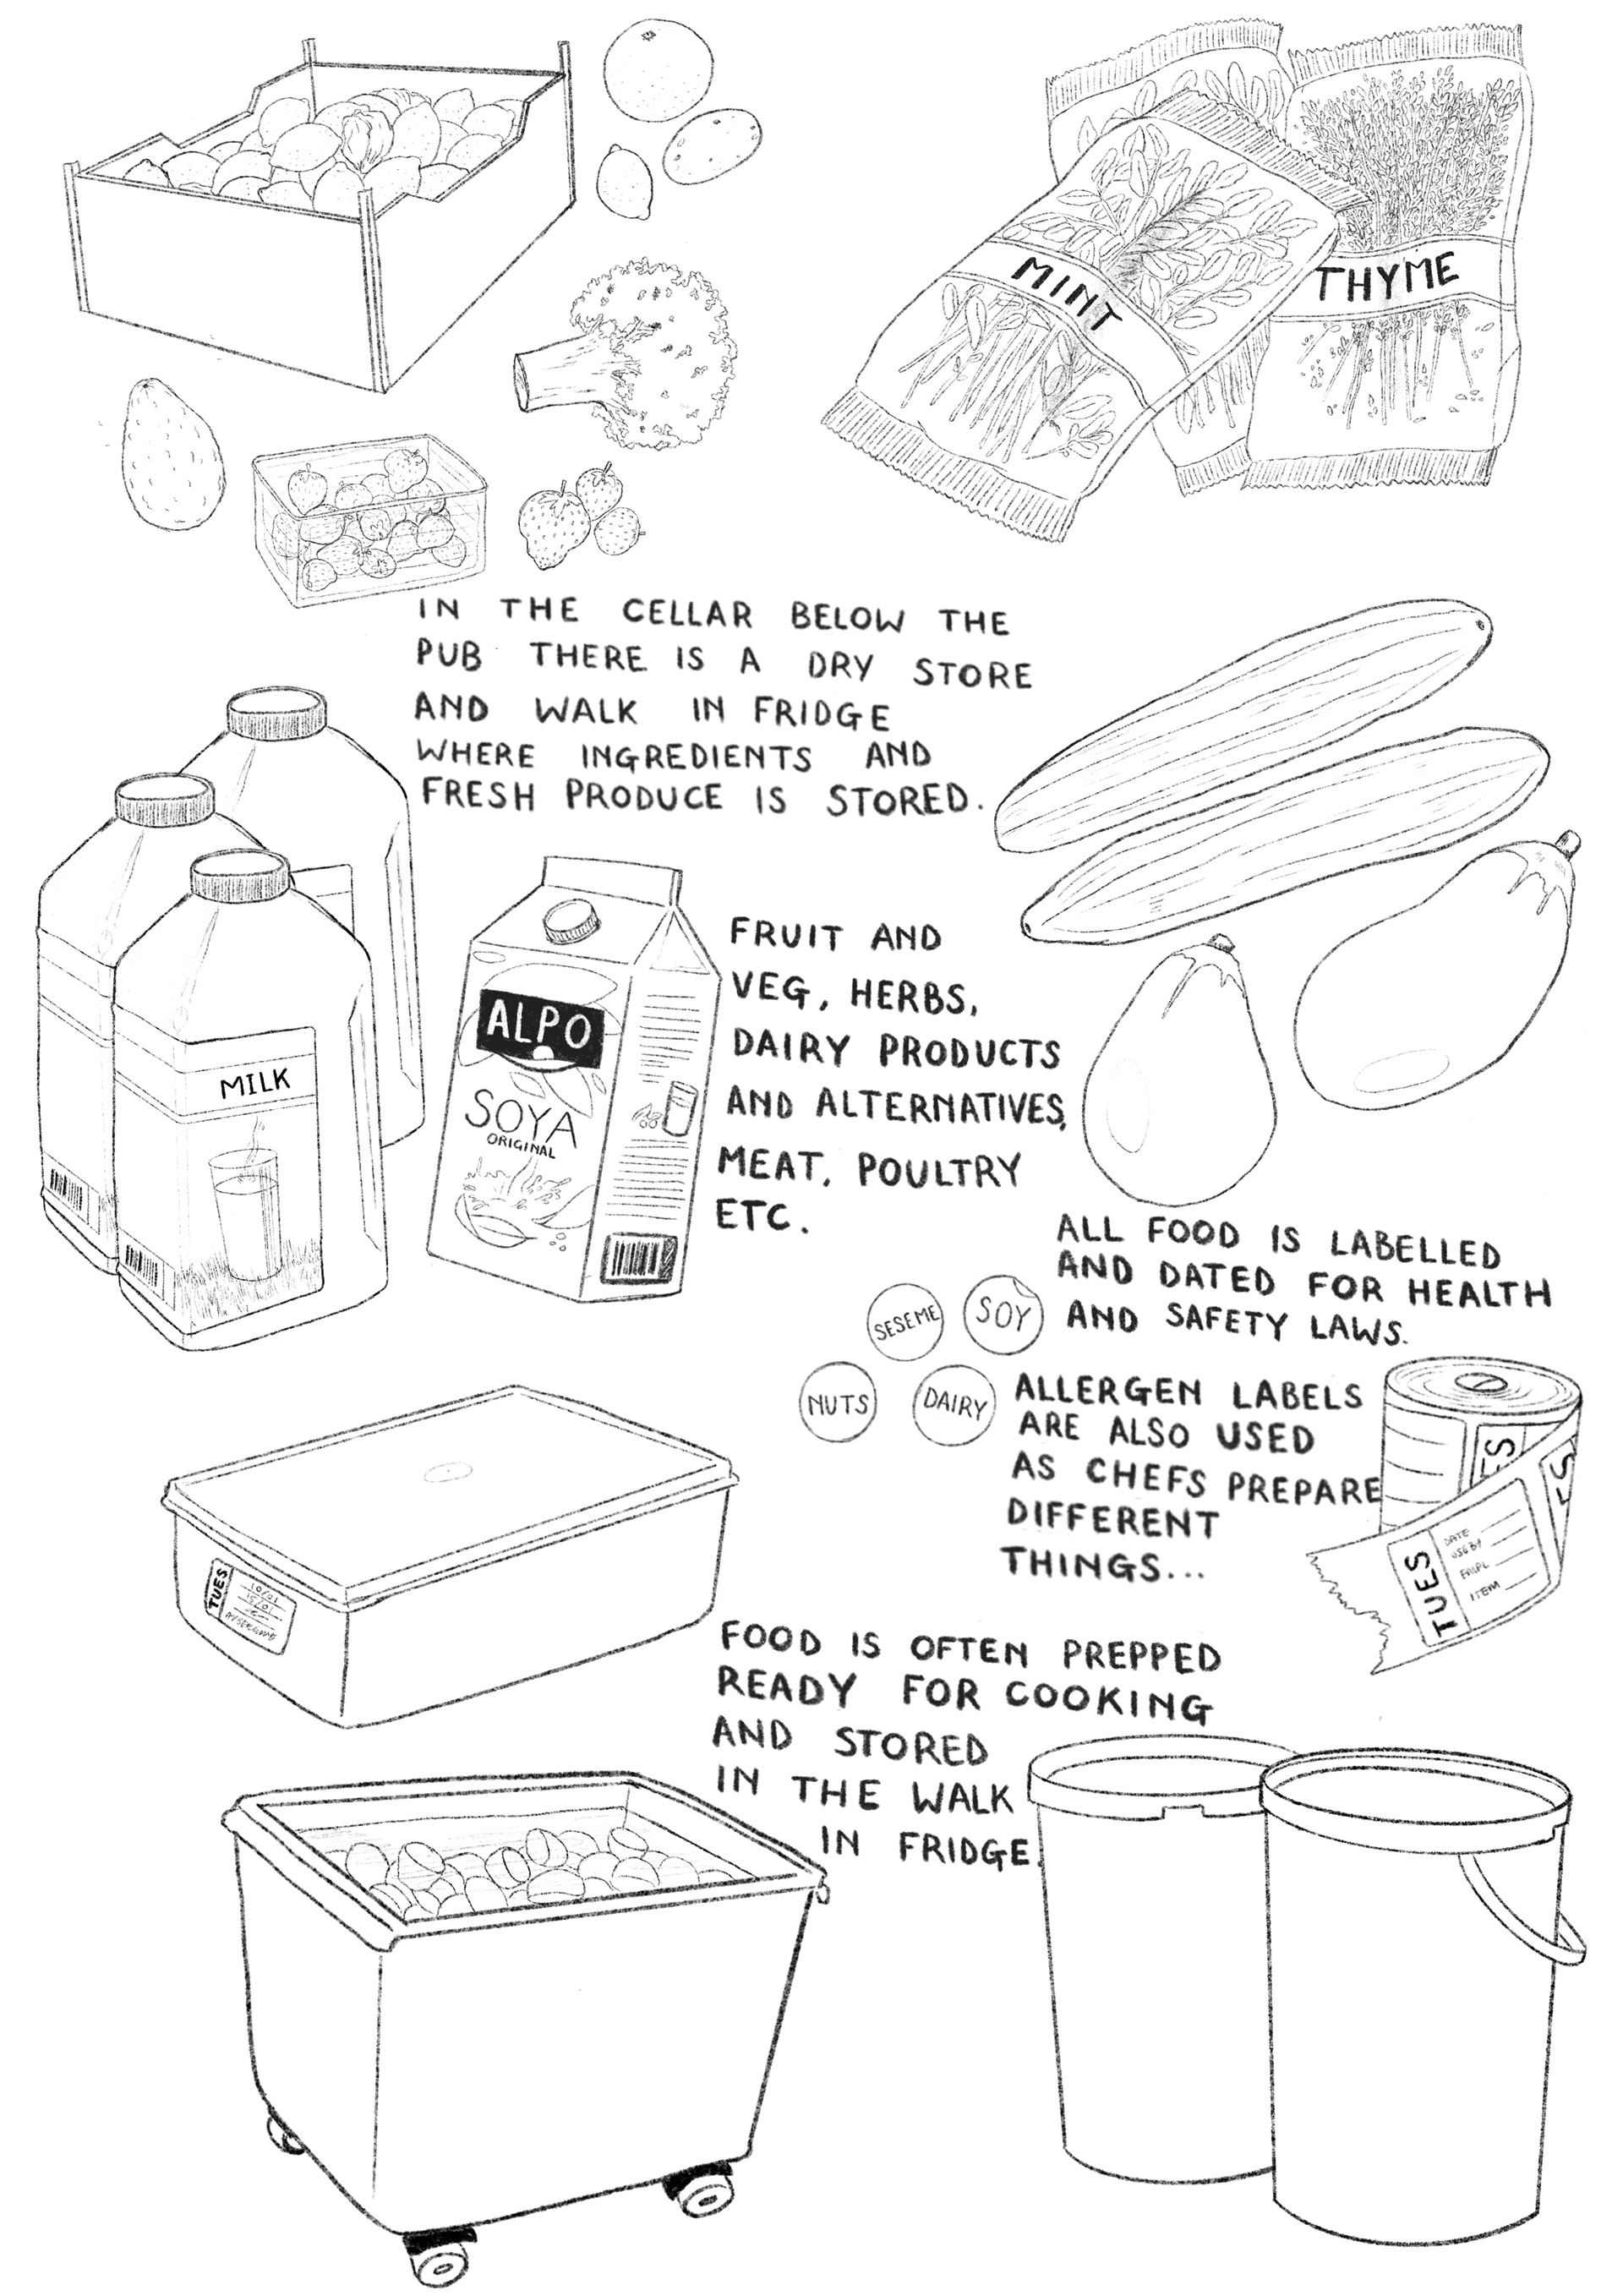 MINT
THYME
IN THE CELLAR BELOW THE
PUB THERE IS A DRY STORE
AND WALK IN FRIDGE
WHERE INGREDIENTS AND
FRESH PRODUCE IS STORED.
MILK
ALPO
SOYA
ORIGINAL
FRUIT AND
VEG, HERBS,
DAIRY PRODUCTS
AND ALTERNATIVES,
MEAT, POULTRY
ETC.
ALL FOOD IS LABELLED
AND DATED FOR HEALTH
AND SAFETY LAWS.
SESEME
SOY
NUTS
DAIRY
ALLERGEN LABELS
ARE ALSO USED
AS CHEFS PREPARE
DIFFERENT
THINGS...
ES
ES
TUES
DATE
USE BY
EMPL
ITEM
TUES
10/01
15/01
AUBERGINE
FOOD IS OFTEN PREPPED
READY FOR COOKING
AND STORED
IN THE WALK
IN FRIDGE.